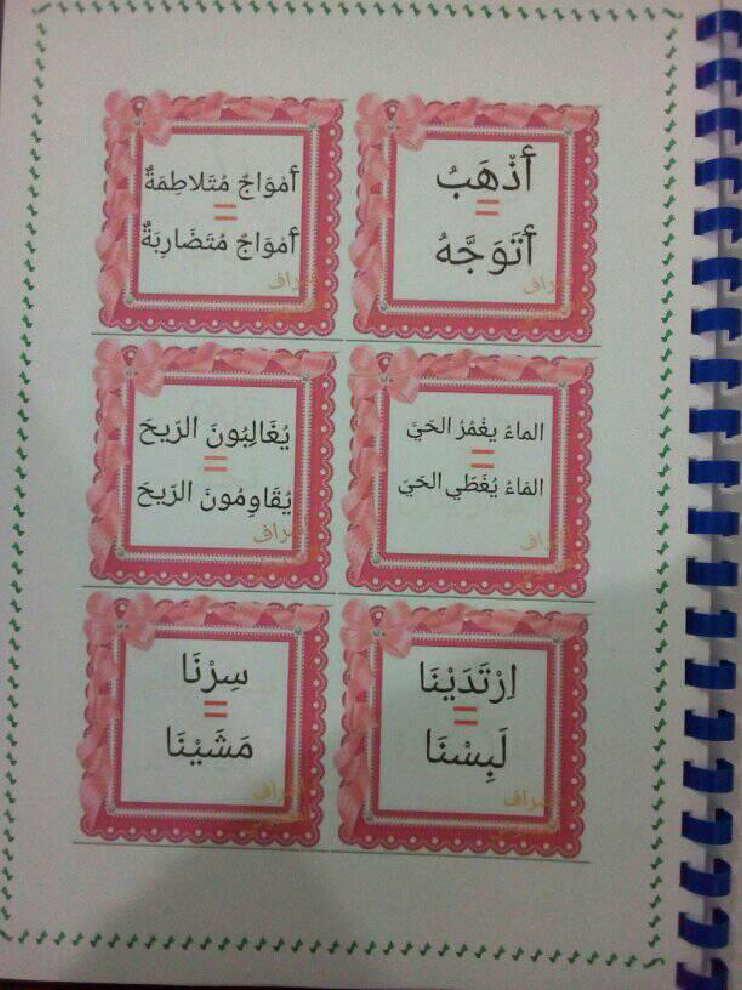 أَذْهَبُ
=
أَتَوَجَّهُ
أَمْوَاجٌ مُتَلاطِمَةٌ
=
أَمْوَاجٌ مُتَضَارِبَةٌ
الماءُ يغْمُرُ الحَيَّ
=
المَاءُ يُغَطِّي الحَيَّ
يُغَالِبُونَ الرّيحَ
=
يُقَاوِمُونَ الرّيحَ
اِرْتَدَيْنَا
=
لَبِسْنَا
سِرْنَا
=
مَشَيْنَا